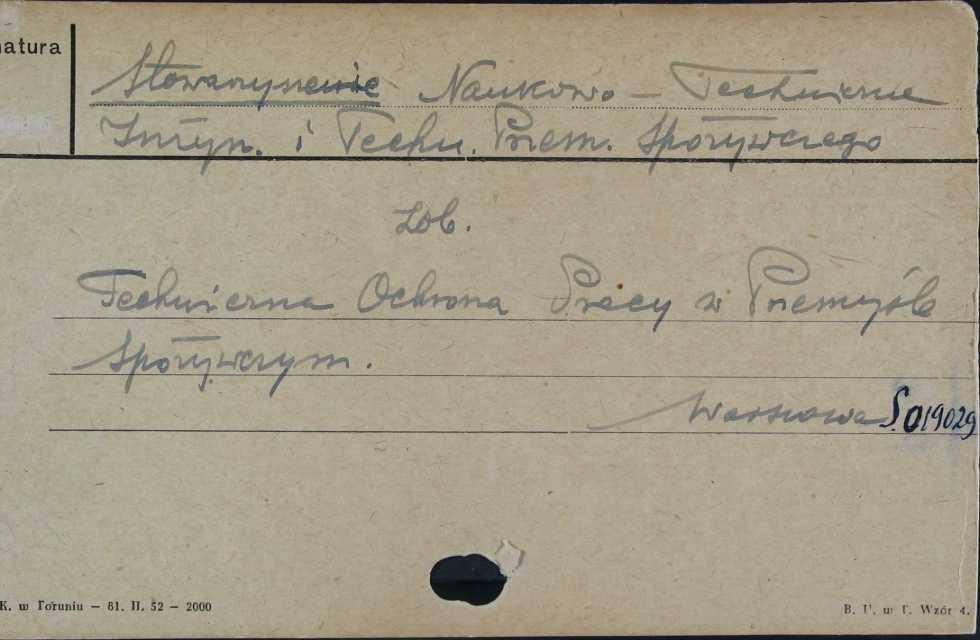 natura
Stowarzyszenie Naukowo-Techniczne
Inżyn. i Techn. Przem. Spożywczego
zob.
Techniczna Ochrona Pracy w Przemyśle
Spożywczym.
Warszawa S.019029
K. w Toruniu — 81. II. 52 — 2000
B. U. w T. Wzór 4.